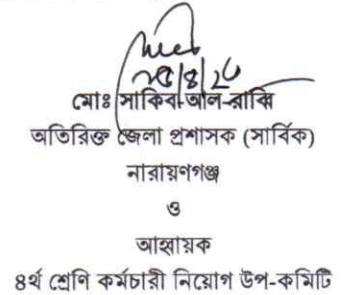 মোঃ সাকিব-আল-রাব্বি
অতিরিক্ত জেলা প্রশাসক (সার্বিক)
নারায়ণগঞ্জ
ও
আহ্বায়ক
৪র্থ শ্রেণি কর্মচারী নিয়োগ উপ-কমিটি